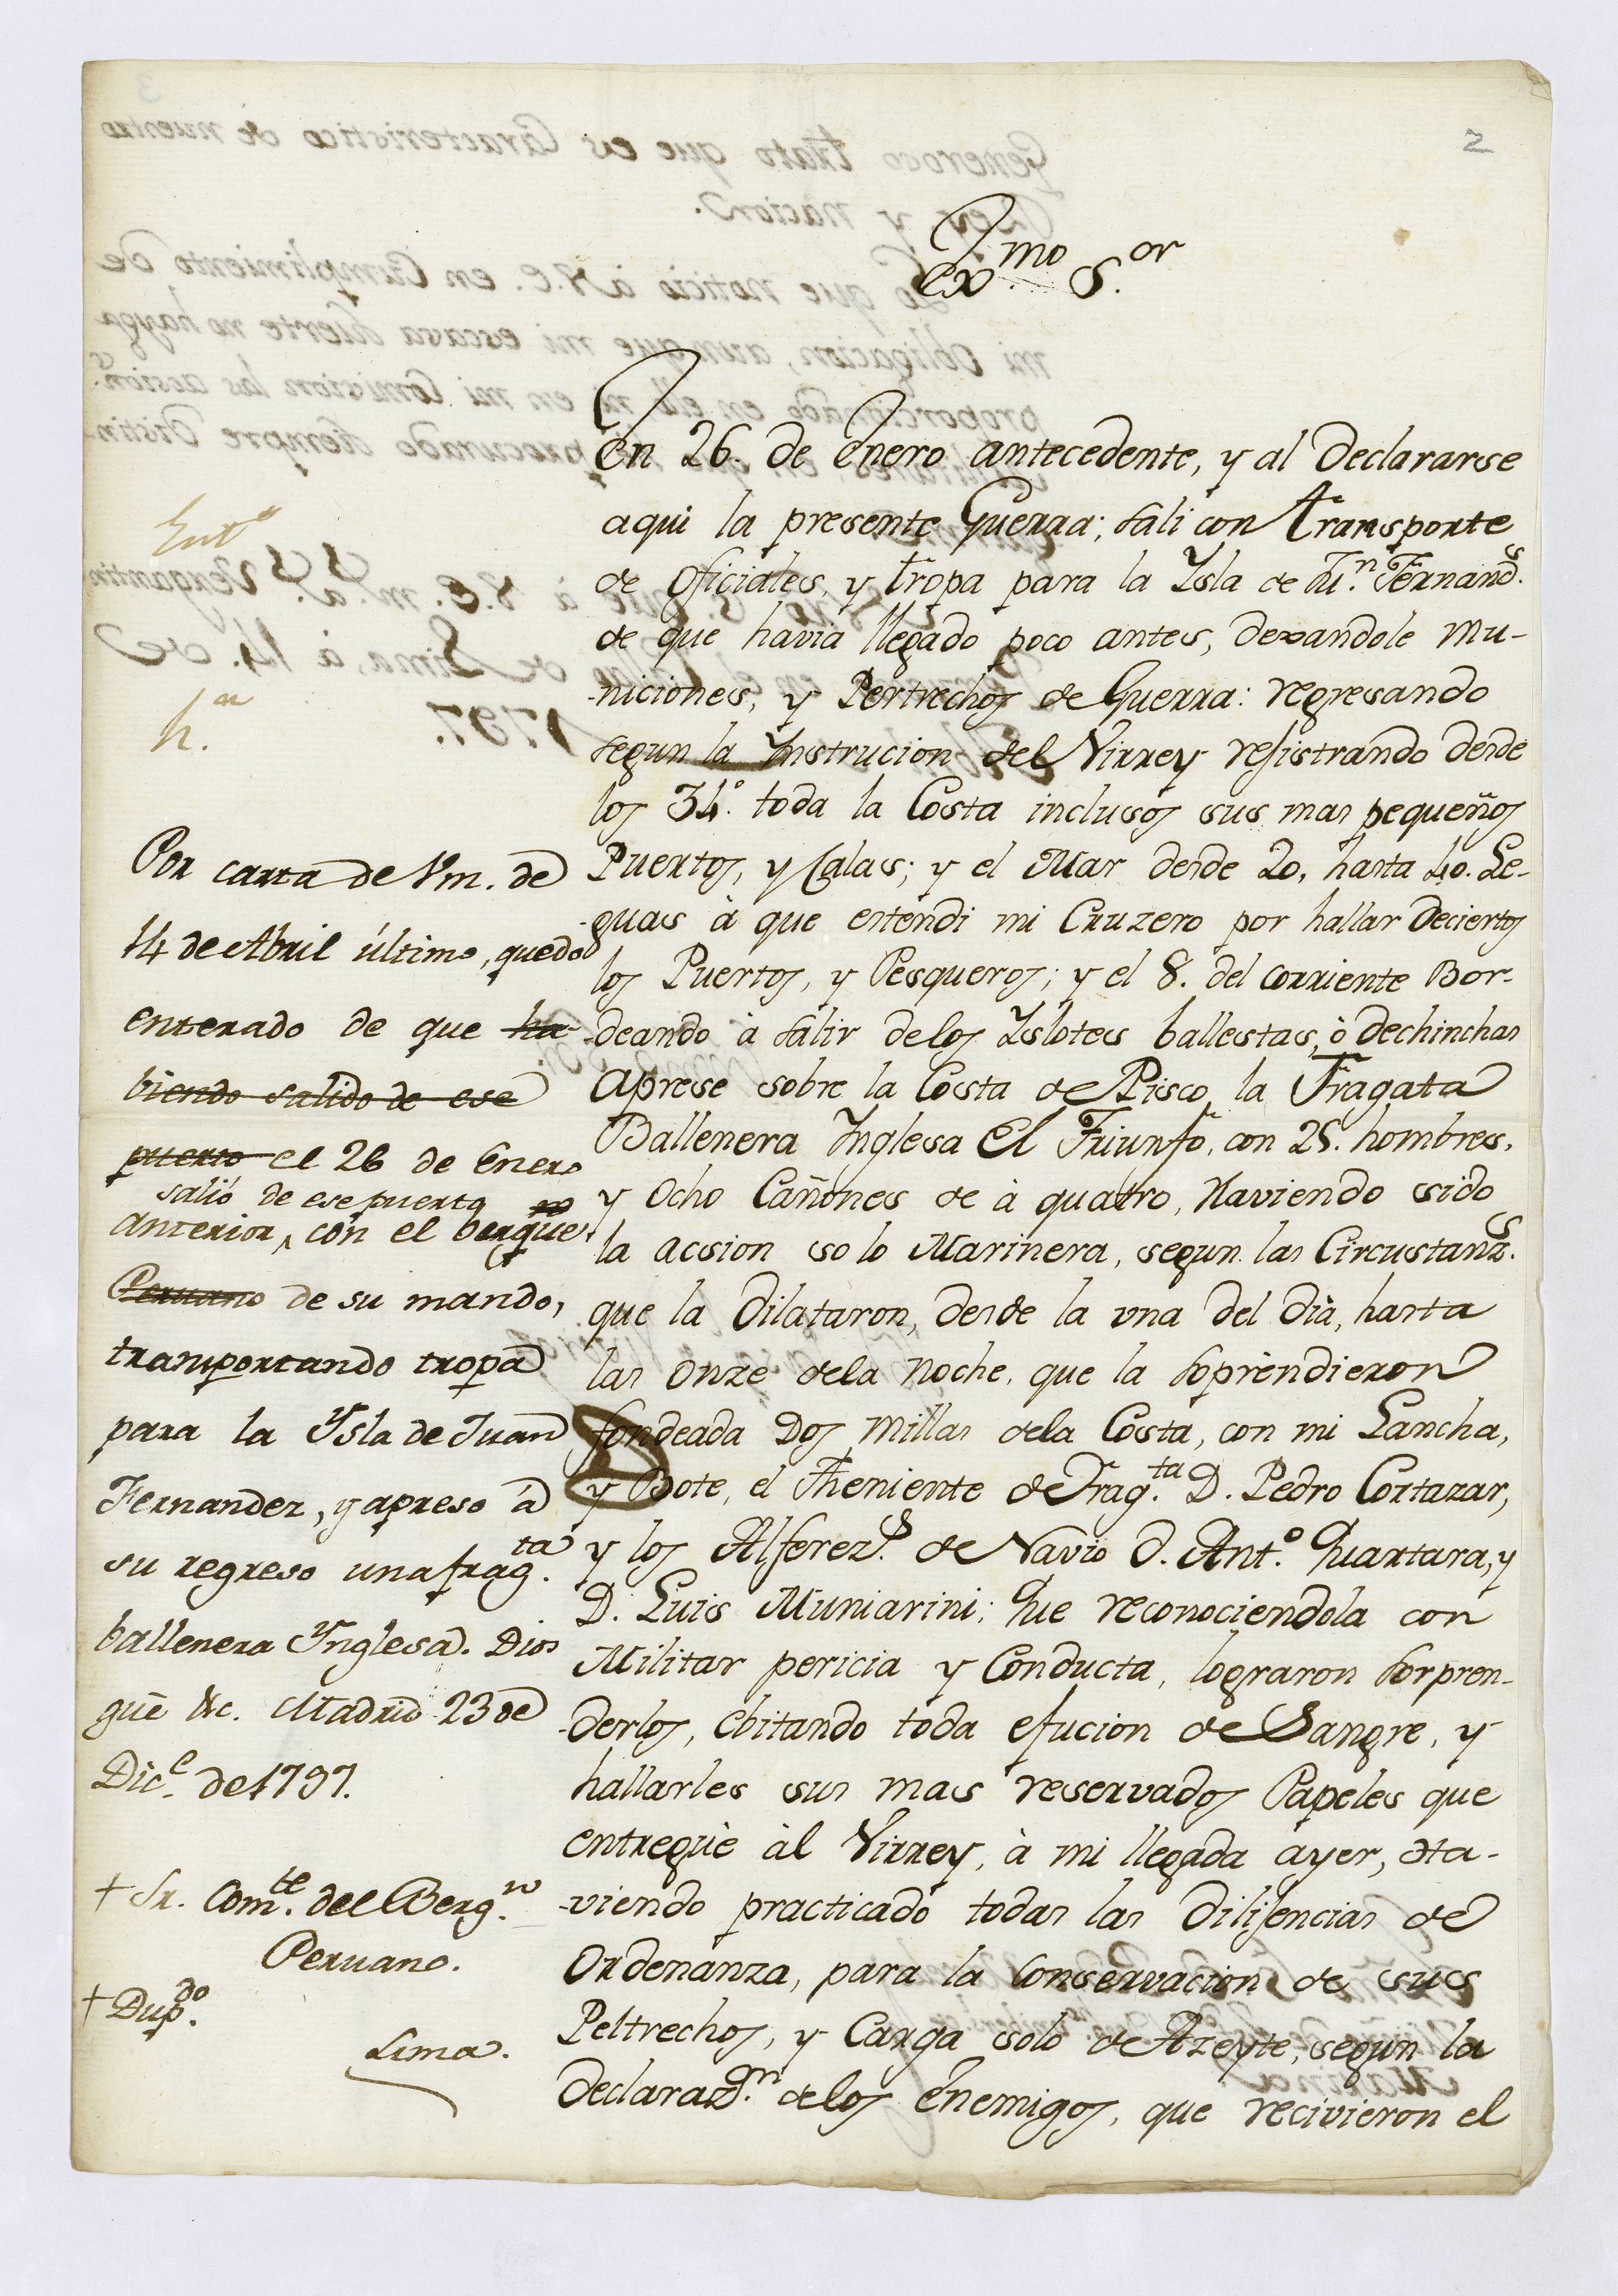 2
Ex.mo S.or
En 26. de Enero antecedente, y al Declararse
aqui la presente Guerra; sali con transporte
de Oficiales, y tropa para la Ysla de Ju.n Fernand.s
de que havia llegado poco antes, dexandole Mu-
-niciones, y Pertrechos de Guerra: regresando
segun la Ynstrucion del Virrey rejistrando desde
los 34.° toda la Costa inclusos sus mas pequeños
Puertos, y Calas; y el Mar desde 20, hasta 40. Le-
-guas à que estendi mi Cruzero por hallar Deciertos
los Puertos, y Pesqueros; y el 8. del corriente Bor-
-deando à salir delos Yslotes ballestas, ò dechinchas
Aprese sobre la Costa de Pisco, la Fragata
Ballenera Ynglesa El Triunfo, con 25. hombres,
y Ocho Cañones de à quatro, Haviendo sido
la acsion solo Marinera, segun las Circustanz.s
que la Dilataron, desde la una del dia, hasta
las Onze dela Noche, que la soprendieron
fondeada Dos Millas dela Costa, con mi Lancha,
y Bote, el Theniente de Frag.ta D. Pedro Cortazar,
y los Alferez.s de Navio D. Ant.o Quartara, y
D. Luis Muniarini; Que reconociendola con
Militar pericia y Conducta, lograron Sorpren-
-derlos, Ebitando toda efucion de Sangre, y
hallarles sus mas reservados Papeles que
entregùe àl Virrey, à mi llegada àyer, Ha-
-viendo practicado todas las Dilijencias de
Ordenanza, para la Conservacion de sus
Peltrechos, y Carga solo de Azeyte, segun la
Declaraz.on delos Enemigos, que recivieron el
Ent.o
Por carta de Vm. de
14 de Abril último, quedo
enterado de que ha-
biendo salido de ese
puerto el 26 de Enero
salió de ese puerto
anterior, con el bergue.
Peruano de su mando,
transportando tropa
para la Ysla de Juan
Fernandez, y apreso á
su regreso una frag.ta
ballenera Ynglesa. Dios
gūe &c. Madrid 23 de
Dic.e de 1797.
+ Sr. Com.te del Berg.n
Peruano.
+ Dup.do
Lima.